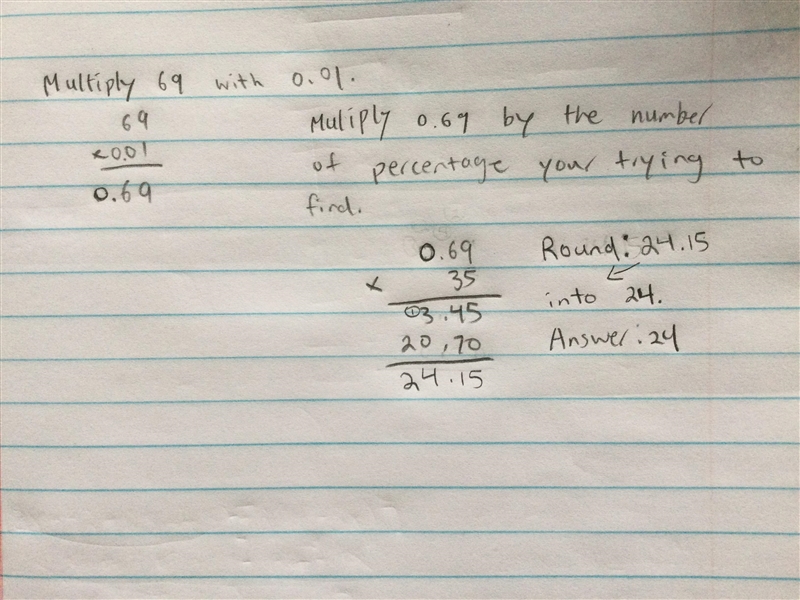 Multiply 69 with 0.01.
69
×0.01
0.69
Muliply 0.69 by the number
of percentage your trying to
find.
0.69
× 35
①3.45
20,70
24.15
Round: 24.15
into 24.
Answer: 24